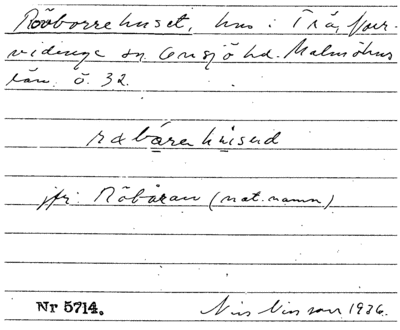 Rööborrehuset, hus i Trä, Norr-
vidinge sn. Onsjö hd. Malmöhus
län. ö. 32.
rabåra húsed
jfr: Röbåran (nat.namn)
Nr 5714.
Nils Nilsson 1936.